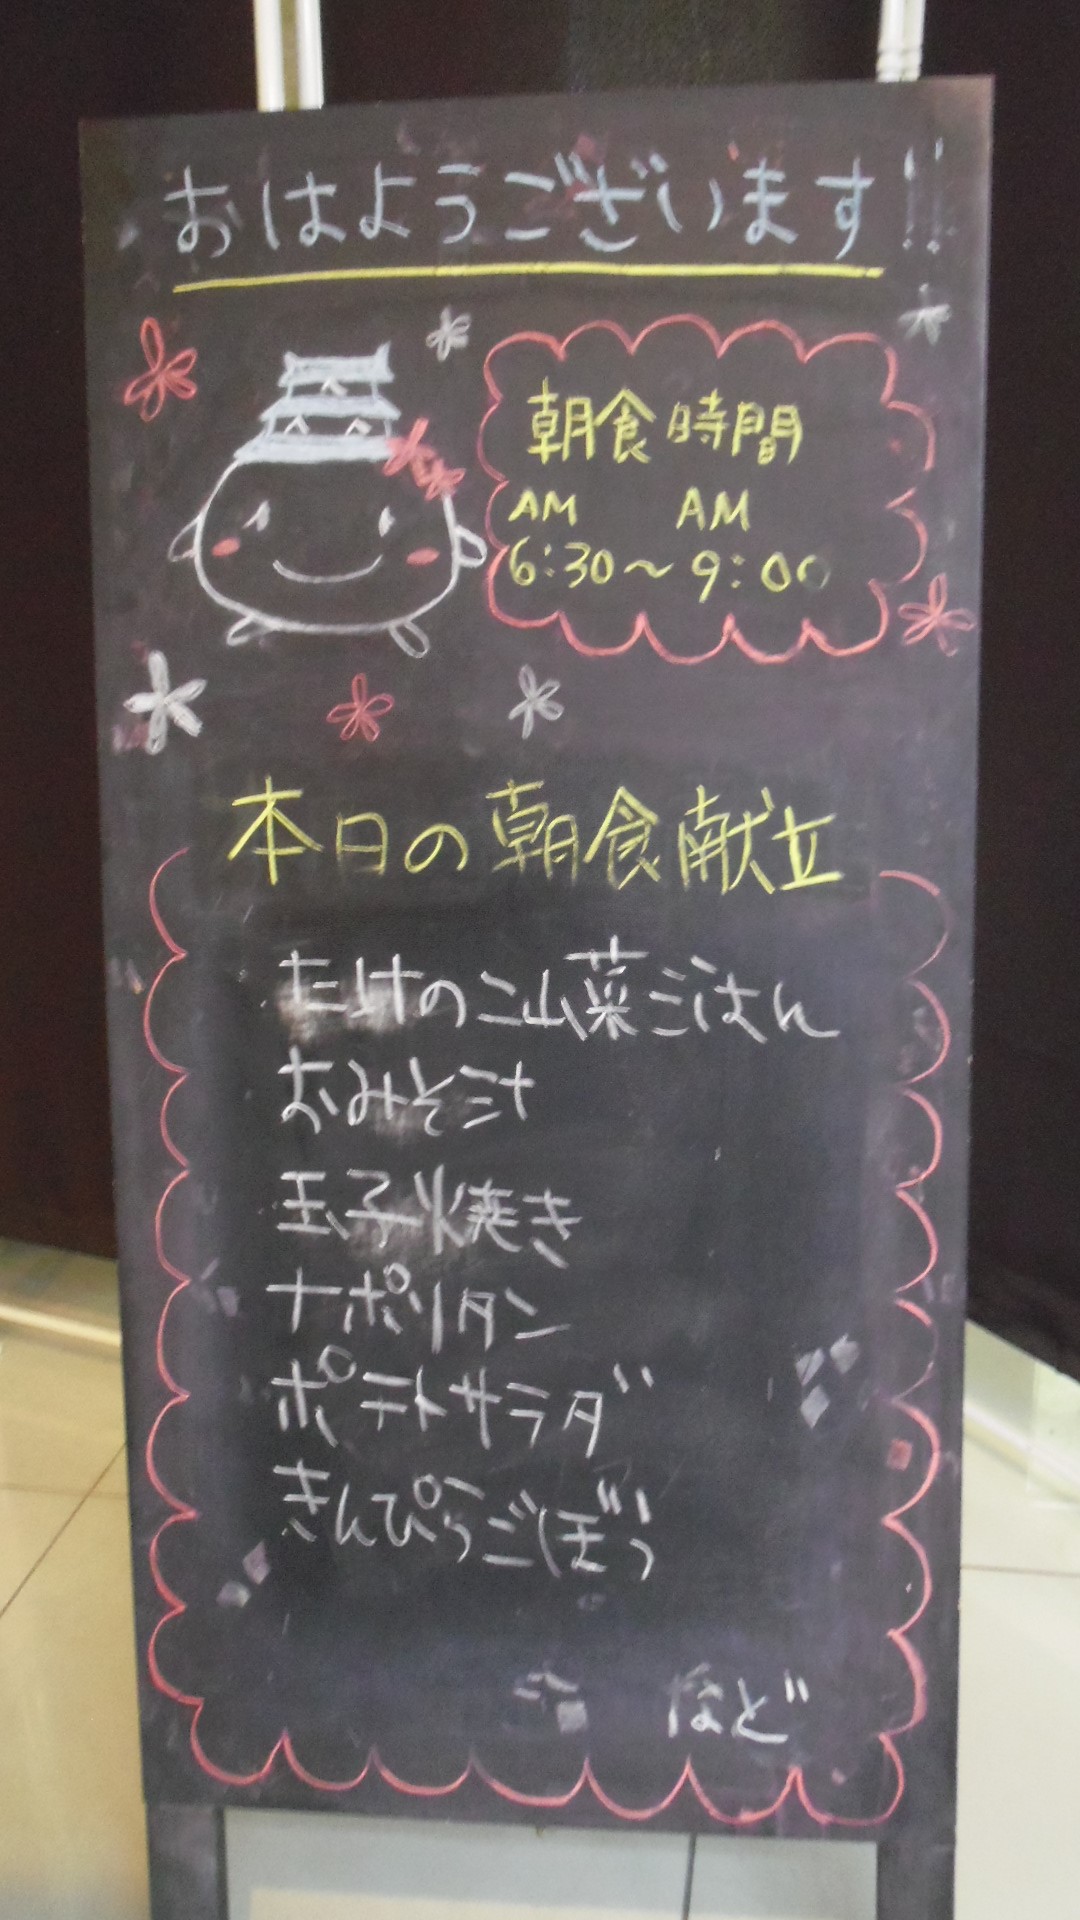 おはようございます!!
朝食時間
AM AM
6:30～9:00
本日の朝食献立
たけのこ山菜ごはん
おみそ汁
玉子焼き
ナポリタン
ポテトサラダ
きんぴらごぼう
など